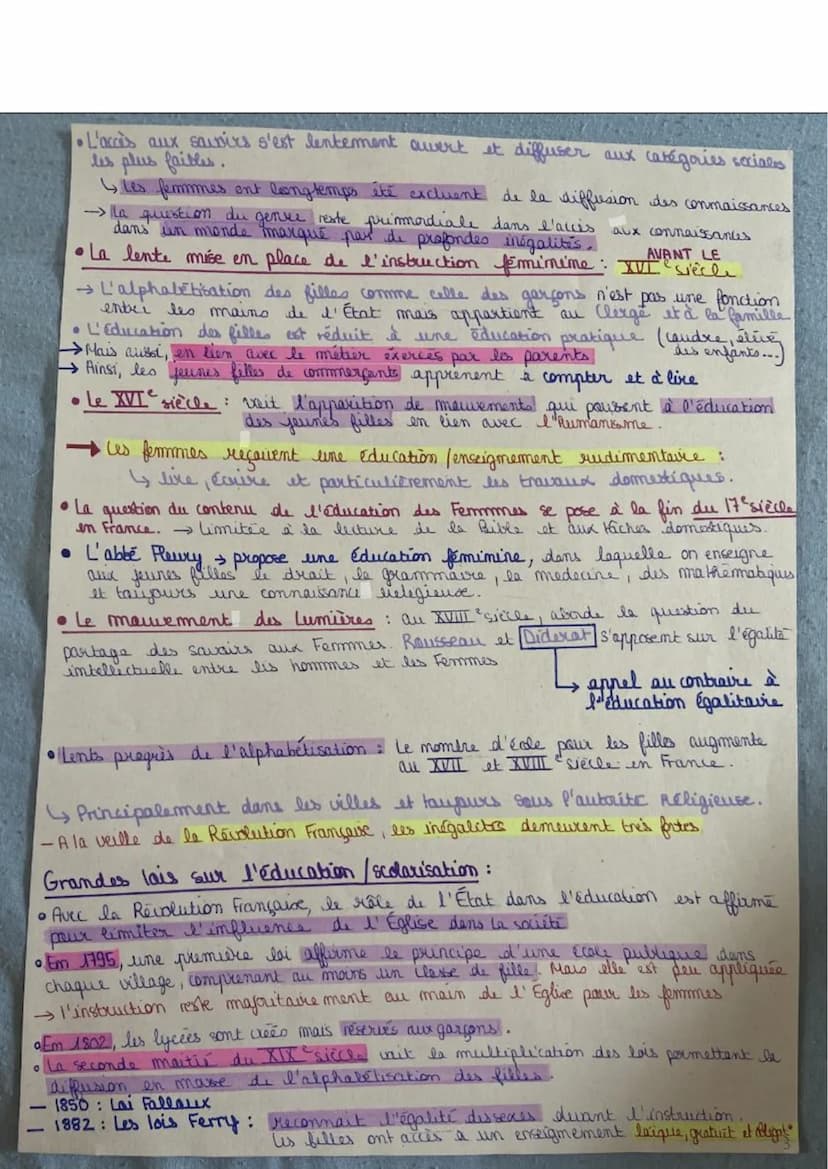 • L'accès aux savoirs s'est lentement ouvert et diffuser aux catégories sociales
les plus faibles.
↳ Les femmmes ont longtemps été excluent de la diffusion des connaissances
→ La question du genre reste primordiale dans l'accès aux connaissances
dans un monde marqué par de profondes inégalités.
• La lente mise en place de l'instruction féminime : AVANT LE
XVIe siècle
→ L'alphabétisation des filles comme celle des garçons n'est pas une fonction
entre les mains de l'État mais appartient au Clergé et à la famille
• L'Éducation des filles est réduit à une éducation pratique (coudre, élevé
des enfants...)
→ Mais aussi, en lien avec le métier éxercés par les parents
→ Ainsi, les jeunes filles de commerçants apprenent à compter et à lire
• Le XVIe siècle : voit l'apparition de mouvements qui poussent à l'éducation
des jeunes filles en lien avec l'Humanisme.
→ Les femmes reçoivent une éducation/enseignement rudimentaire :
↳ lire, écrire et particulièrement les travaux domestiques.
• La question du contenu de l'éducation des Femmmes se pose à la fin du 17e siècle
en France. → Limitée à la lecture de la Bible et aux tâches domestiques.
• L'abbé Fleury → propose une éducation féminine, dans laquelle on enseigne
aux jeunes filles le droit, la grammaire, la medecine, des mathématiques
et toujours une connaissance religieuse.
• Le mouvement des Lumières : au XVIII e siècle, aborde la question du
partage des savoirs aux Femmes. Rousseau et Diderot s'opposent sur l'égalité
intellectuelle entre les hommes et les Femmes
↳ appel au contraire à
l'éducation égalitaire
• Lents progrès de l'alphabétisation : Le nombre d'école pour les filles augmente
au XVII et XVIII e siècle en France.
↳ Principalement dans les villes et toujours sous l'autorité religieuse.
- A la veille de la Révolution Française, les inégalités demeurent très fortes
Grandes lois sur l'éducation/scolarisation :
• Avec la Révolution Française, le rôle de l'État dans l'éducation est affirmé
pour limiter l'influence de l'Église dans la société
• Em 1795, une première loi affirme le principe d'une école publique dans
chaque village, comprenant au moins un classe de fille. Mais elle est peu appliquée
→ l'instruction reste majoritairement au main de l'Église pour les femmes
• Em 1802, les lycées sont créés mais réservés aux garçons.
• La seconde moitié du XIXe siècle voit la multiplication des lois permettant la
diffusion en masse de l'alphabétisation des filles.
- 1850 : Loi Falloux
- 1882 : Les lois Ferry : reconnait l'égalité des sexes devant l'instruction.
Les filles ont accès à un enseignement laïque, gratuit et obligat°